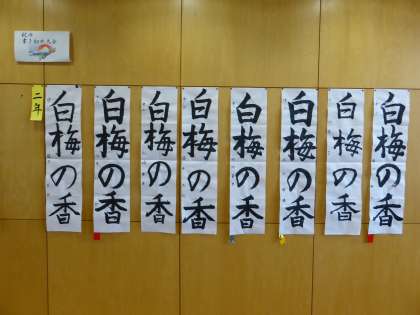 二年
白梅の香
白梅の香
白梅の香
白梅の香
白梅の香
白梅の香
白梅の香
白梅の香